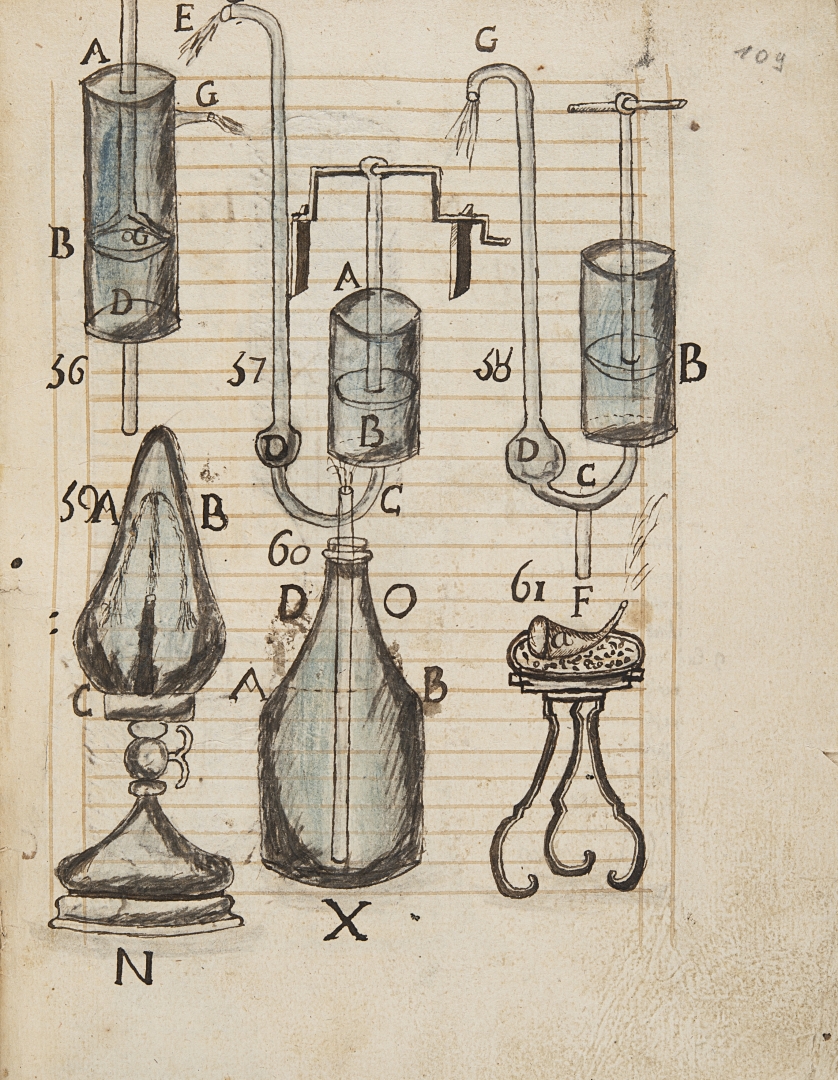 E
G
109
A
G
B
G
D
A
56
57
58
B
B
D
D
C
C
59
A
B
60
61
F
D
O
a
C
A
B
N
X